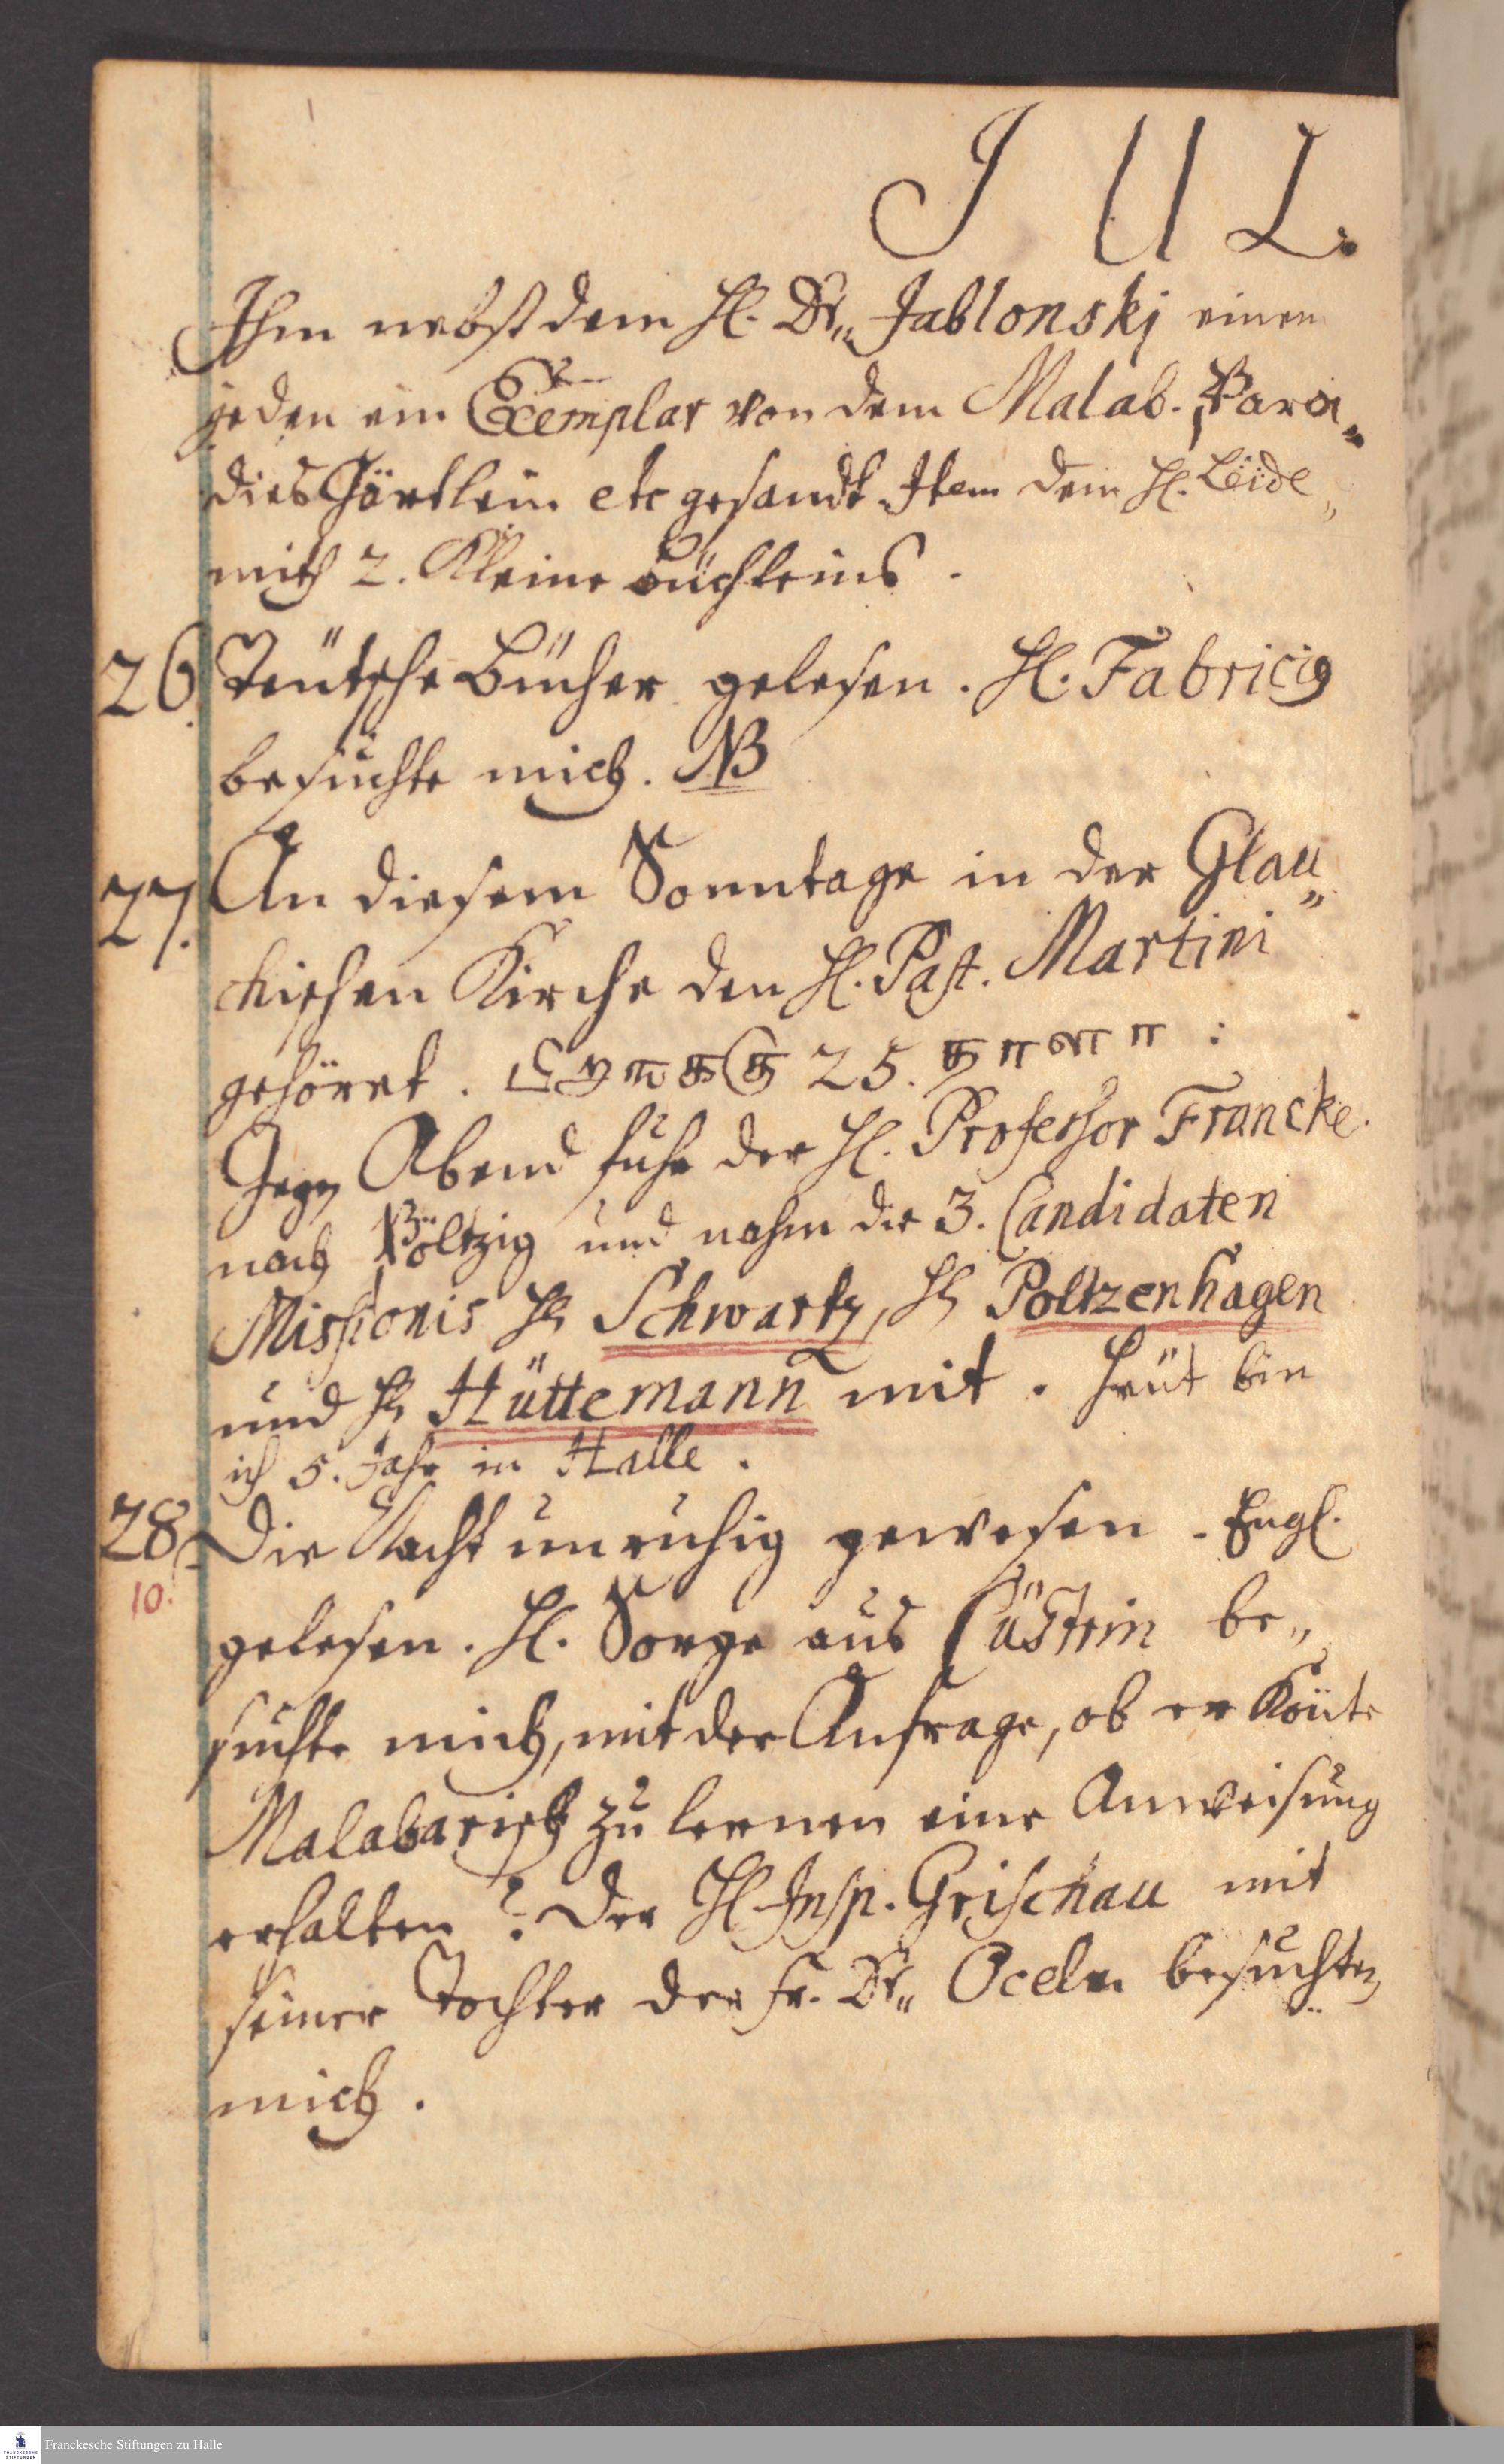 JUL.
Ihm nebst dem H. Dr„ Jablonskj einen
jeden ein Exemplar von dem Malab. Para„
dies Gärtlein etc gesandt. Item dem H. Leide„
mith 2. Kleine büchleins.
26. Teütsche Bücher gelesen. H. Fabriciꝰ
besuchte mich. NB
27. An diesem Sonntage in der Glau„
chischen Kirche den H. Past. Martini
gehöret. 25.
Gegen Abend fuhr der H. Professor Francke.
nach Pöltzig und nahm die 3. Candidaten
Missionis H. Schwartz, H. Poltzenhagen
und H. Hüttemann mit. Heüt bin
ich 5. Jahr in Halle.
28. Die Nacht unruhig gewesen. Engl.
10.
gelesen. H. Sorge aus Cüstrin be„
suchte mich, mit der Anfrage, ob er könte
Malabarisch zu lernen eine Anweisung
erhalten? Der H. Insp. Grischau mit
seiner Tochter der Fr. Dr„ besuchten
mich.
Franckesche Stiftungen zu Halle
FRANCKESCHE
STIFTUNGEN